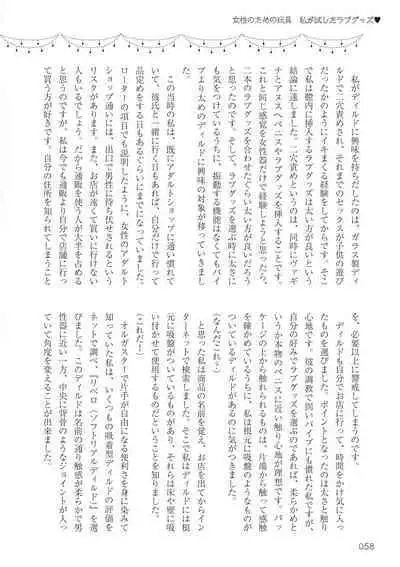 女性のための玩具　私が試したラブグッズ♥
私がディルドに興味を持ちだしたのは、ガラス製ディ
ルドで二穴責めされ、それまでのセックスが子供の遊び
だったかのようにイキまくる経験をしてからです。そこ
で私は膣内に挿入するラブグッズは太い方が良いという
結論に達しました。二穴責めというのは、同時にヴァギ
ナとアヌスへペニスやラブグッズを挿入することです。
これと同じ感覚を女性器だけで経験しようと思ったら、
二本のラブグッズを合わせたぐらい太い方が良いだろう
と思ったのです。そして、ラブグッズを選ぶ時に太さに
気をつけているうちに、振動する機能はなくてもバイ
ブより太めのディルドに興味の対象が移っていきまし
た。
この当時の私は、既にアダルトショップに通い慣れて
いて、彼氏と一緒に行く日もあれば、自分だけで行って
品定めをする日もあるぐらいにまでになっていました。
ローターの項目でも説明したように、女性のアダルト
ショップ通いには、出口で男性に待ち伏せされるという
リスクがあります。また、お店が遠くて買いに行けない
人もいるでしょう。だから通販を使う人が大半を占める
と思うのですが、私は今でも通販より自分で店舗に行っ
て買う方が好きです。自分の住所を知られてしまうこと
を、必要以上に警戒してしまうのです。
ディルドも自分でお店に行って、時間をかけ気に入っ
たものを選びました。ポイントとなったのは太さと触り
心地です。彼の調教で固いバイブにも慣れた私ですが、
自分の好みでラブグッズを選ぶのであれば、柔らかめと
いうか本物のペニスに近い触り心地が理想です。パッ
ケージの上から触れられるものは、片端から触って感触
を確かめているうちに、私は根元に吸盤のようなものが
ついているディルドがあるのに気がつきました。
（なんだこれ？）
と思った私は商品の名前を覚え、お店を出てからイン
ターネットで検索しました。そこで私はディルドには根
元に吸盤がついているものがあり、それらは床や壁に吸
い付かせて使用するものだということを知りました。
（これだ！）
オルガスターで片手が自由になる便利さを身に染みて
知っていた私は、いくつもの吸着型ディルドの評価を
ネットで調べ、「リベロ（ソフトリアルディルド）」を選
びました。このディルドは名前の通り触感が柔らかで男
性器に近い一方、中央に背骨のようなジョイントが入っ
ていて角度を変えることが出来ました。
058